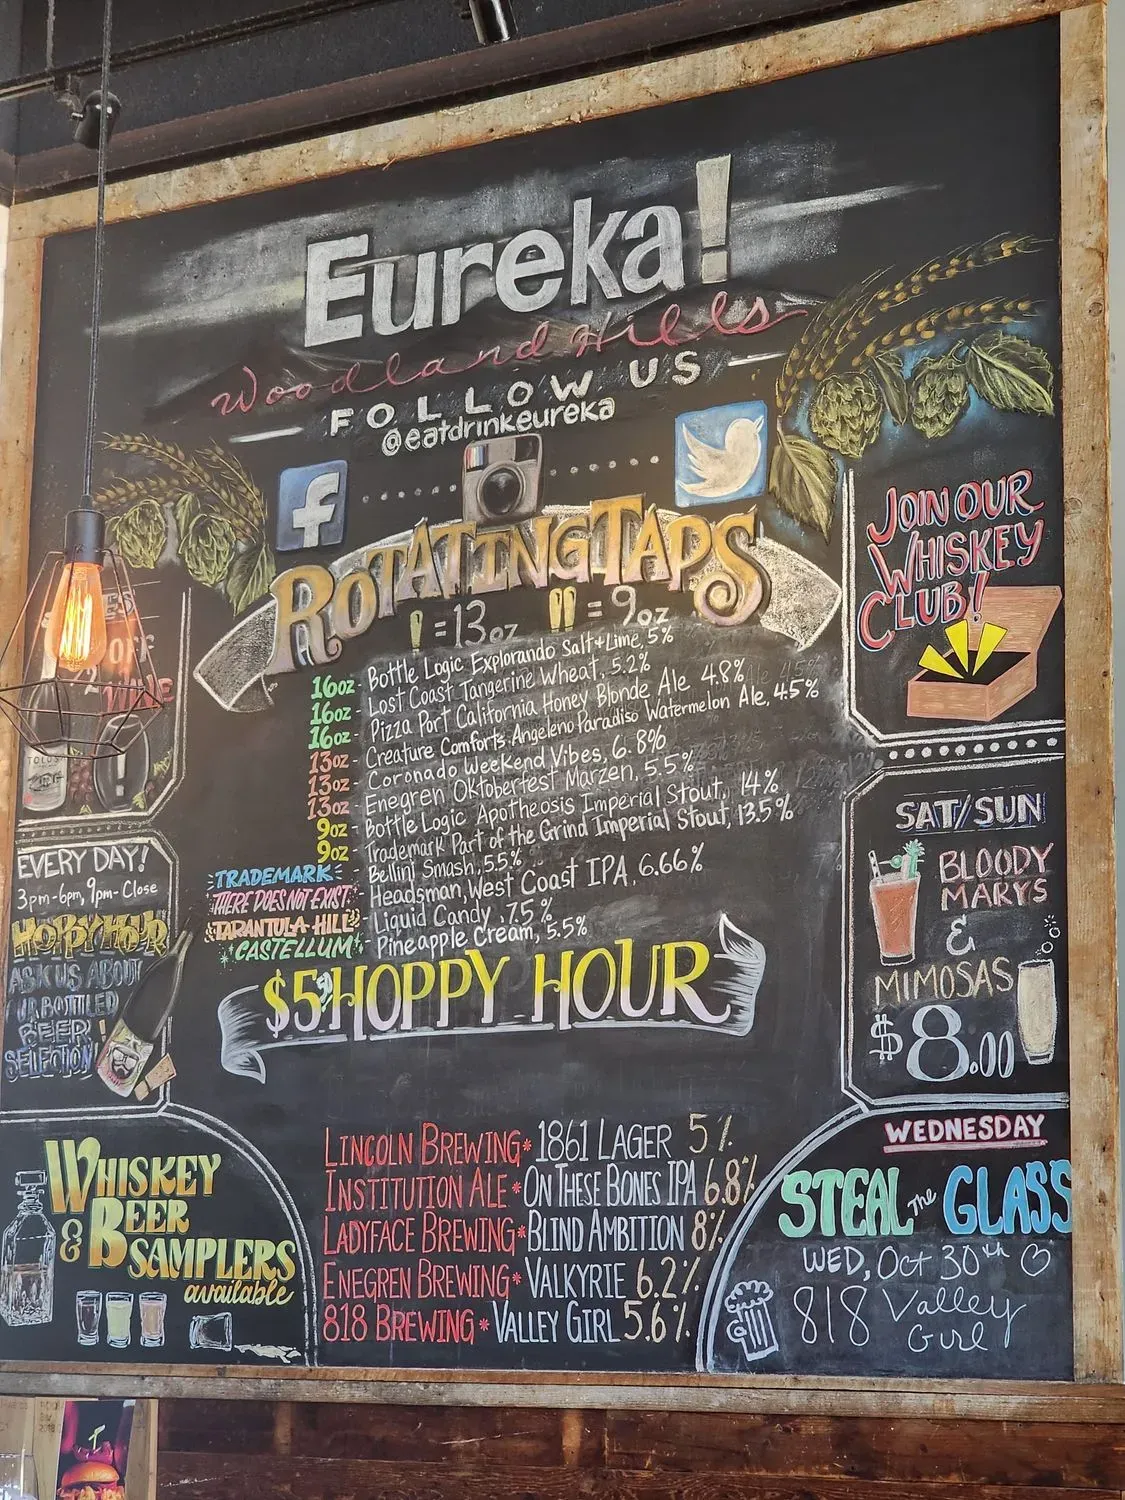 Eureka!
Woodland Hills
FOLLOW US
@eatdrinkeureka
ROTATING TAPS
=13oz =9oz
16oz - Bottle Logic Explorando Salt+Lime, 5%
16oz - Lost Coast Tangerine Wheat, 5.2%
16oz - Pizza Port California Honey Blonde Ale 4.8%
13oz - Creature Comforts Angeleno Paradiso Watermelon Ale, 4.5%
13oz - Coronado Weekend Vibes, 6.8%
13oz - Enegren Oktoberfest Marzen, 5.5%
9oz - Bottle Logic Apotheosis Imperial Stout, 14%
9oz - Trademark Part of the Grind Imperial Stout, 13.5%
TRADEMARK - Bellini Smash, 5.5%
THERE DOES NOT EXIST - Headsman, West Coast IPA, 6.66%
TARANTULA HILL - Liquid Candy, 7.5%
CASTELLUM - Pineapple Cream, 5.5%
$5 HOPPY HOUR
LINCOLN BREWING * 1861 LAGER 5%
INSTITUTION ALE * ON THESE BONES IPA 6.8%
LADYFACE BREWING * BLIND AMBITION 8%
ENEGREN BREWING * VALKYRIE 6.2%
818 BREWING * VALLEY GIRL 5.6%
OFF
WINE
EVERY DAY!
3pm-6pm, 9pm-Close
HOPPY HOUR
ASK US ABOUT
UR BOTTLED
BEER
SELECTION!
WHISKEY
& BEER
SAMPLERS
available
JOIN OUR
WHISKEY
CLUB!
SAT/SUN
BLOODY
MARYS
&
MIMOSAS
$8.00
WEDNESDAY
STEAL THE GLASS
WED, Oct 30th
818 Valley
Girl